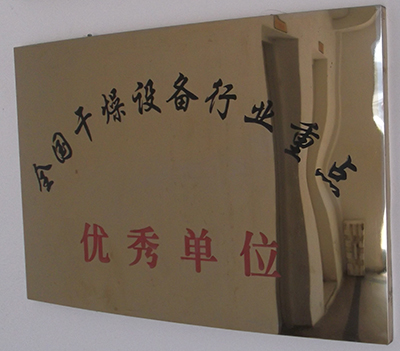 全国干燥设备行业重点
优秀单位